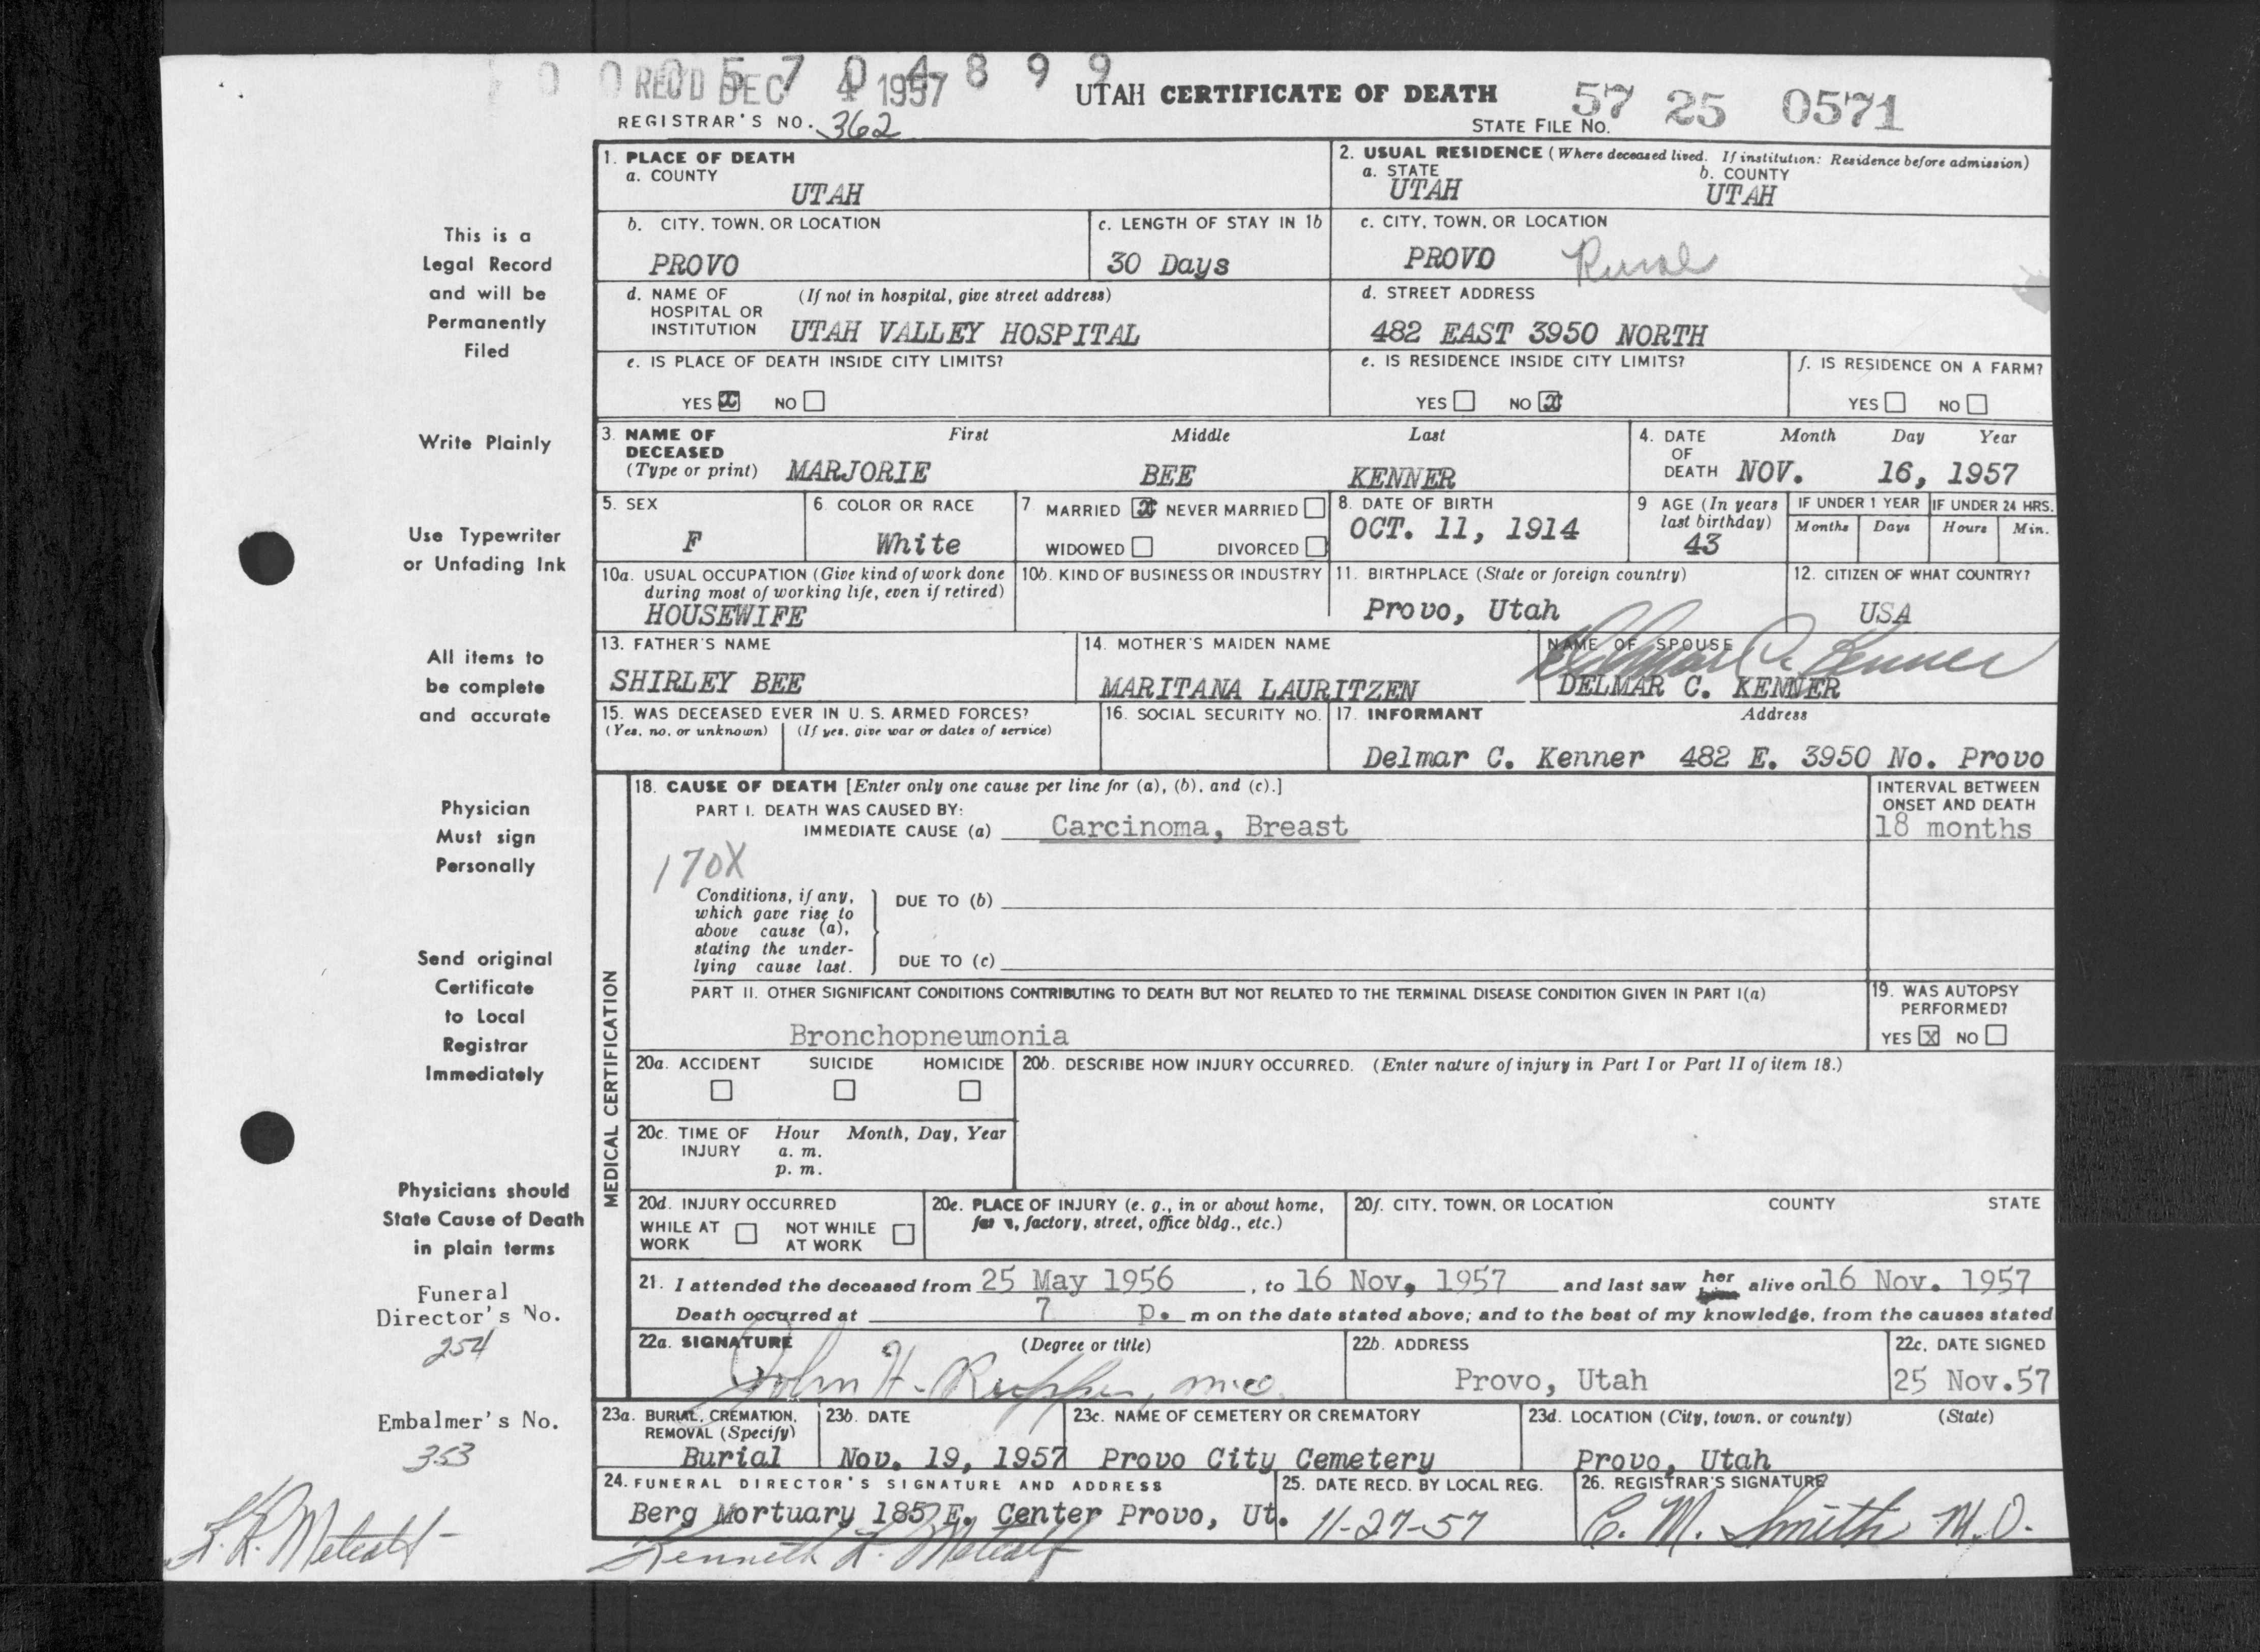 0 0 0 5 7 0 4 8 9 9
REC'D DEC 4 1957
UTAH CERTIFICATE OF DEATH
57 25 0571
REGISTRAR'S NO. 362
STATE FILE NO.
1. PLACE OF DEATH
a. COUNTY
UTAH
2. USUAL RESIDENCE (Where deceased lived. If institution: Residence before admission)
a. STATE b. COUNTY
UTAH UTAH
b. CITY, TOWN, OR LOCATION
PROVO
c. LENGTH OF STAY IN 1b
30 Days
c. CITY, TOWN, OR LOCATION
PROVO Rural
d. NAME OF HOSPITAL OR INSTITUTION (If not in hospital, give street address)
UTAH VALLEY HOSPITAL
d. STREET ADDRESS
482 EAST 3950 NORTH
e. IS PLACE OF DEATH INSIDE CITY LIMITS?
YES x NO
e. IS RESIDENCE INSIDE CITY LIMITS?
YES NO x
f. IS RESIDENCE ON A FARM?
YES NO
3. NAME OF DECEASED (Type or print) First Middle Last
MARJORIE BEE KENNER
4. DATE OF DEATH Month Day Year
NOV. 16, 1957
5. SEX
F
6. COLOR OR RACE
White
7 MARRIED x NEVER MARRIED
WIDOWED DIVORCED
8. DATE OF BIRTH
OCT. 11, 1914
9 AGE (In years last birthday)
43
IF UNDER 1 YEAR IF UNDER 24 HRS.
Months Days Hours Min.
10a. USUAL OCCUPATION (Give kind of work done during most of working life, even if retired)
HOUSEWIFE
10b. KIND OF BUSINESS OR INDUSTRY
11. BIRTHPLACE (State or foreign country)
Provo, Utah
12. CITIZEN OF WHAT COUNTRY?
USA
13. FATHER'S NAME
SHIRLEY BEE
14. MOTHER'S MAIDEN NAME
MARITANA LAURITZEN
NAME OF SPOUSE
Delmar C. Kenner
DELMAR C. KENNER
15. WAS DECEASED EVER IN U. S. ARMED FORCES?
(Yes, no, or unknown) (If yes, give war or dates of service)
16. SOCIAL SECURITY NO.
17. INFORMANT Address
Delmar C. Kenner 482 E. 3950 No. Provo
MEDICAL CERTIFICATION
18. CAUSE OF DEATH [Enter only one cause per line for (a), (b), and (c).]
PART I. DEATH WAS CAUSED BY:
IMMEDIATE CAUSE (a) Carcinoma, Breast
INTERVAL BETWEEN ONSET AND DEATH
18 months
170X
Conditions, if any, which gave rise to above cause (a), stating the underlying cause last.
DUE TO (b)
DUE TO (c)
PART II. OTHER SIGNIFICANT CONDITIONS CONTRIBUTING TO DEATH BUT NOT RELATED TO THE TERMINAL DISEASE CONDITION GIVEN IN PART I(a)
Bronchopneumonia
19. WAS AUTOPSY PERFORMED?
YES X NO
20a. ACCIDENT SUICIDE HOMICIDE
20b. DESCRIBE HOW INJURY OCCURRED. (Enter nature of injury in Part I or Part II of item 18.)
20c. TIME OF INJURY Hour Month, Day, Year
a. m.
p. m.
20d. INJURY OCCURRED
WHILE AT WORK NOT WHILE AT WORK
20e. PLACE OF INJURY (e. g., in or about home, factory, street, office bldg., etc.)
20f. CITY, TOWN, OR LOCATION COUNTY STATE
21. I attended the deceased from 25 May 1956, to 16 Nov, 1957 and last saw her alive on 16 Nov. 1957
Death occurred at 7 p. m on the date stated above; and to the best of my knowledge, from the causes stated
22a. SIGNATURE (Degree or title)
John H. Rupper, M.D.
22b. ADDRESS
Provo, Utah
22c. DATE SIGNED
25 Nov.57
23a. BURIAL, CREMATION, REMOVAL (Specify)
Burial
23b. DATE
Nov. 19, 1957
23c. NAME OF CEMETERY OR CREMATORY
Provo City Cemetery
23d. LOCATION (City, town, or county) (State)
Provo, Utah
24. FUNERAL DIRECTOR'S SIGNATURE AND ADDRESS
Berg Mortuary 185 E. Center Provo, Ut.
Kenneth L. Metcalf
25. DATE RECD. BY LOCAL REG.
11-27-57
26. REGISTRAR'S SIGNATURE
C. M. Smith M.D.
This is a
Legal Record
and will be
Permanently
Filed
Write Plainly
Use Typewriter
or Unfading Ink
All items to
be complete
and accurate
Physician
Must sign
Personally
Send original
Certificate
to Local
Registrar
Immediately
Physicians should
State Cause of Death
in plain terms
Funeral
Director's No.
254
Embalmer's No.
353
Metcalf